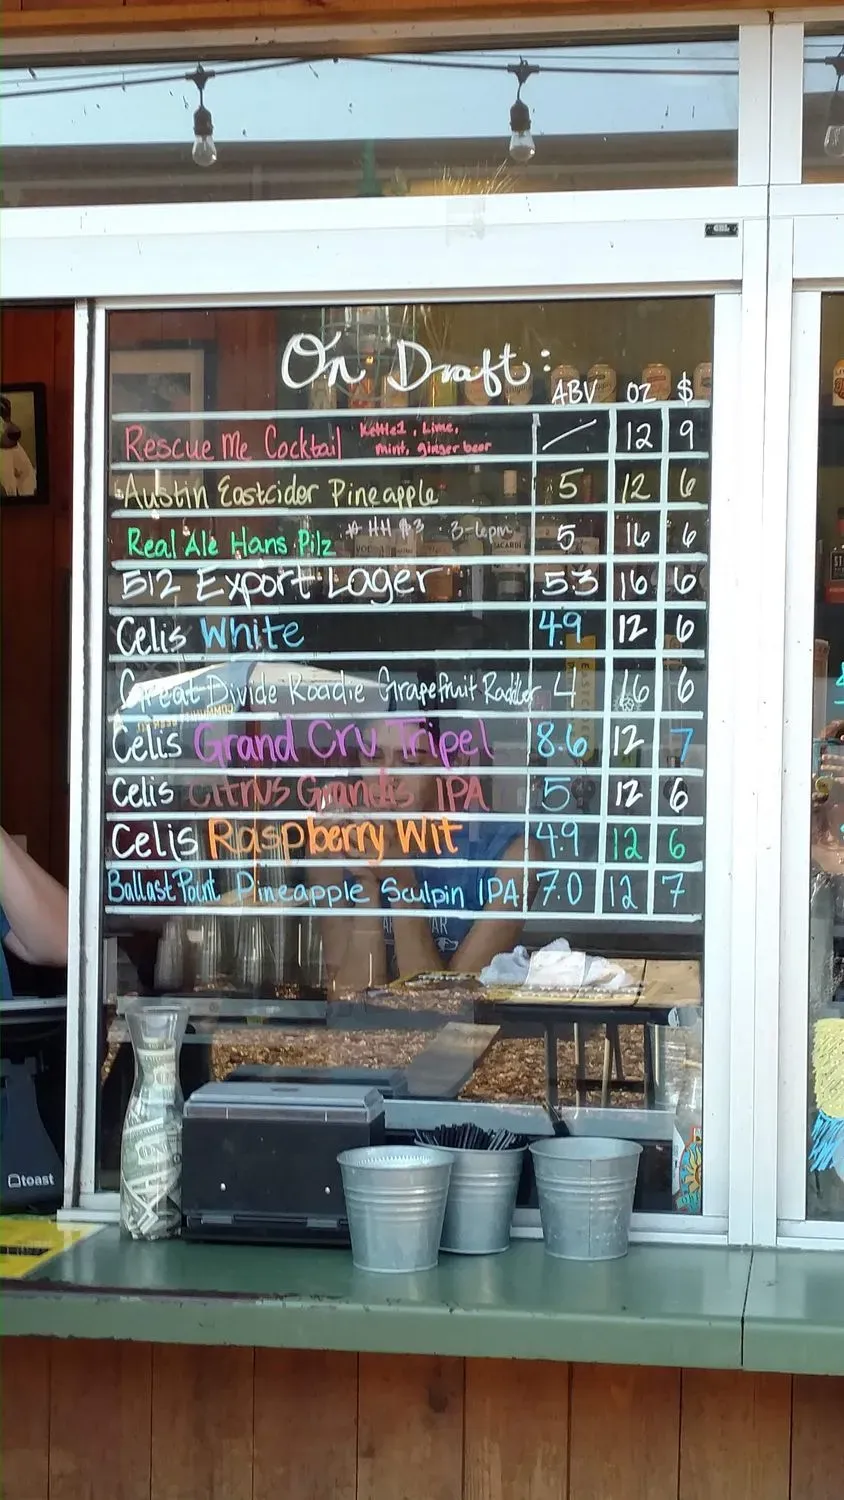 On Draft:
ABV OZ $
Rescue Me Cocktail Kettle1, Lime, mint, ginger beer / 12 9
Austin Eastcider Pineapple 5 12 6
Real Ale Hans Pilz * HH $3 3-6pm 5 16 6
512 Export Lager 5.3 16 6
Celis White 4.9 12 6
Great Divide Roadie Grapefruit Raddler 4 16 6
Celis Grand Cru Tripel 8.6 12 7
Celis Citrus Grandis IPA 5 12 6
Celis Raspberry Wit 4.9 12 6
Ballast Point Pineapple Sculpin IPA 7.0 12 7
toast